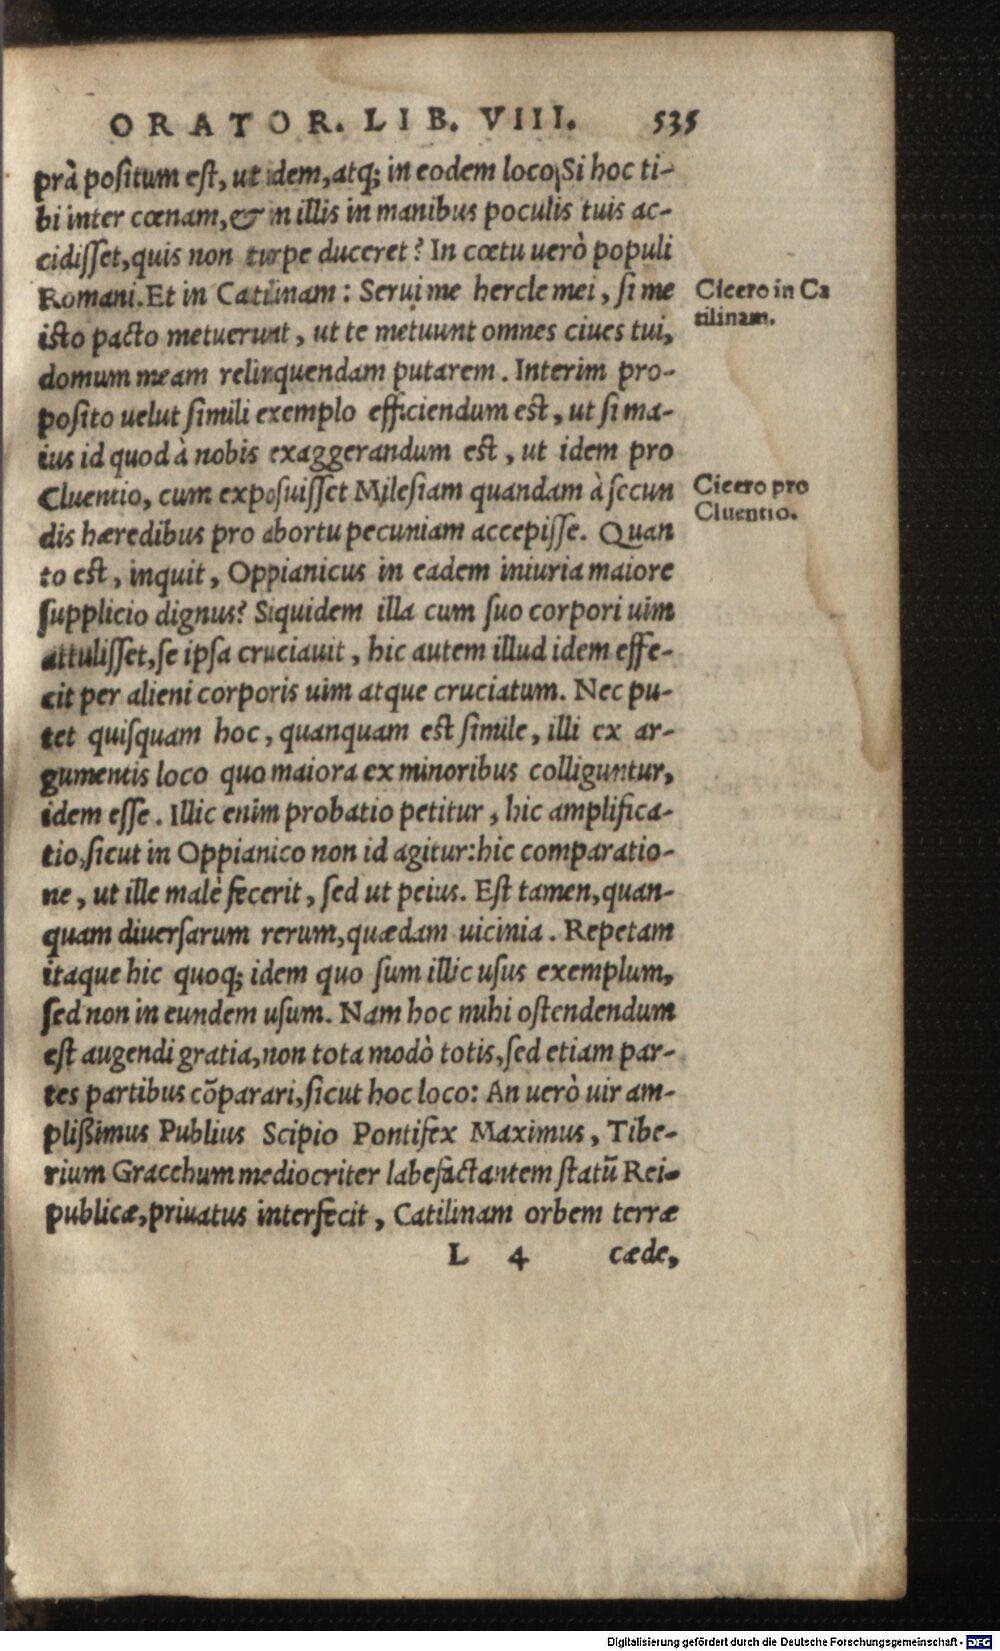 ORATOR. LIB. VIII. 535
prà positum est, ut idem, atq; in eodem loco, Si hoc ti-
bi inter cœnam, & in illis in manibus poculis tuis ac-
cidisset, quis non turpe duceret? In cœtu uerò populi
Romani. Et in Catilinam: Serui me hercle mei, si me
Cicero in Ca
tilinam.
isto pacto metuerunt, ut te metuunt omnes ciues tui,
domum meam relinquendam putarem. Interim pro-
posito uelut simili exemplo efficiendum est, ut si ma-
ius id quod à nobis exaggerandum est, ut idem pro
Cluentio, cum exposuisset Milesiam quandam à secun
Cicero pro
Cluentio.
dis hæredibus pro abortu pecuniam accepisse. Quan
to est, inquit, Oppianicus in eadem iniuria maiore
supplicio dignus? Siquidem illa cum suo corpori uim
attulisset, se ipsa cruciauit, hic autem illud idem effe-
cit per alieni corporis uim atque cruciatum. Nec pu-
tet quisquam hoc, quanquam est simile, illi ex ar-
gumentis loco quo maiora ex minoribus colliguntur,
idem esse. Illic enim probatio petitur, hic amplifica-
tio, sicut in Oppianico non id agitur: hic comparatio-
ne, ut ille malè fecerit, sed ut peius. Est tamen, quan-
quam diuersarum rerum, quædam uicinia. Repetam
itaque hic quoq; idem quo sum illic usus exemplum,
sed non in eundem usum. Nam hoc mihi ostendendum
est augendi gratia, non tota modò totis, sed etiam par-
tes partibus cõparari, sicut hoc loco: An uerò uir am-
plißimus Publius Scipio Pontifex Maximus, Tibe-
rium Gracchum mediocriter labefactantem statũ Rei-
publicæ, priuatus interfecit, Catilinam orbem terræ
L 4 cæde,
Digitalisierung gefördert durch die Deutsche Forschungsgemeinschaft - DFG